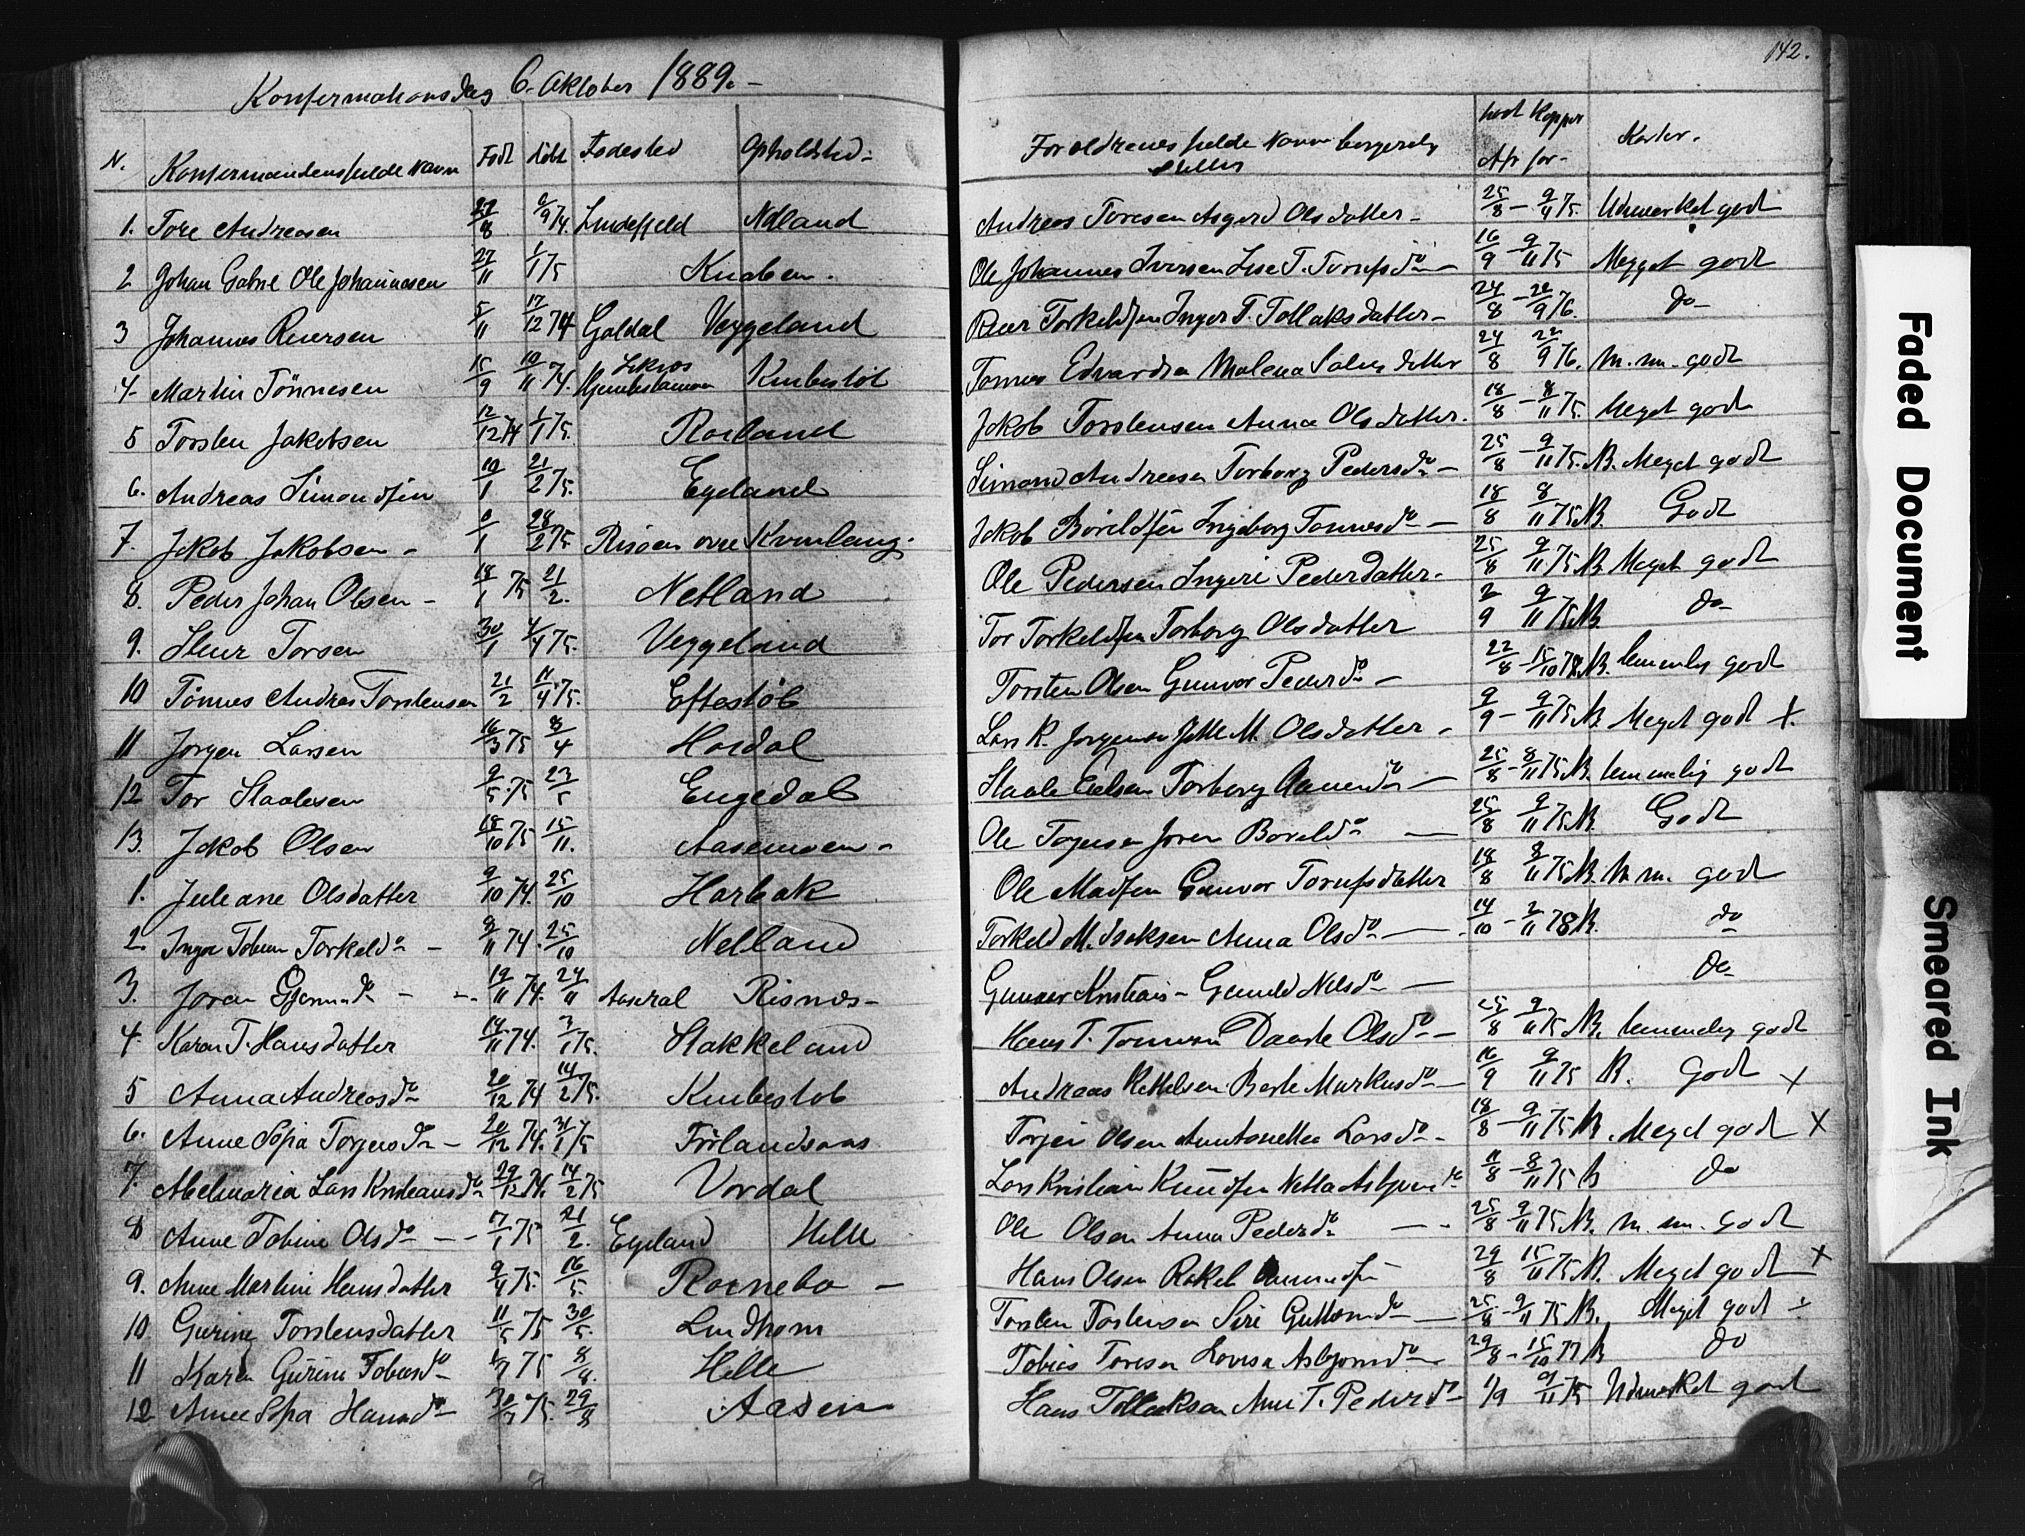 142.
Konfirmationsdag 6. Oktober 1889. –
N. Konfirmandens fulde Navn Født Døbt Fødested Opholdsted
Forældrenes fulde Navn borgerlig stilling havt Kopper Afr for- Karkter.
1. Tore Andreasen 27/8 6/9 74. Lindefjeld Netland Andreas Toresen Asgerd Olsdatter – 25/8 – 9/4 75. Udmerket godt
2 Johan Gabrel Ole Johannesen 27/11 1/1 75 Knaben. Ole Johannes Iversen Lise T. Torufsdr – 16/9 – 9/11 75 Meget godt
3 Johannes Reiersen 5/11 17/12 74 Galdal Veggeland Reier Torkeldsen Inger T. Tollaksdatter – 24/8 – 22/9 76. do –
4 Martin Tönnesen 15/9 10/11 74. Kvibestöl Tönnes Edvardsen Malena Salvesdatter 24/8 22/9 76. M. m. godt
5 Torsten Jakobsen 12/12 74 1/1 75. Roiland Jakob Torstensen Anna Olsdatter. 18/8 – 8/11 75. Meget godt
6. Andreas Simondsen 10/1 21/2 75. Egeland Simond Andreasen Torborg Pedersdr – 25/8 – 9/11 75. N. Meget godt
7. Jakob Jakobsen – 6/1 28/2 75. Risöen övre Kvinlaug. Jakob Boieldsen Ingeborg Tonnesdr – 18/8 8/11 75 N. Godt
8. Peder Johan Olsen – 18/1 75 21/2. Netland Ole Pedersen Ingeri Pedersdatter – 25/8 9/11 75 N Meget godt
9. Steur Torsen 30/1 4/4 75. Veggeland Tor Torkeldsen Torborg Olsdatter 2/9 9/11 75 N do –
10 Tönnes Andreas Torstensen 21/2 11/4 75. Eftestöl Torsten Olsen Gunvor Pedersdr – 22/8 – 15/10 78 N. temmelig godt
11 Jörgen Larsen 16/3 75 8/4 Hordal Lars R. Jörgensen Jette M. Olsdatter – 9/9 – 9/11 75 N Meget godt X.
12 Tor Staalesen 9/5 75 23/5 Engedal Staale Eielsen Torborg Aanensdr – 25/8 – 8/11 75 N. temmelig godt
13. Jakob Olsen 18/10 75 15/11. Aasemoen – Ole Torgersen Joren Boieldsdr — 25/8 9/11 75 N. Godt
1. Juliane Olsdatter 9/10 74. 25/10 Harbak Ole Madsen Gunvor Torufsdatter 18/8 8/11 75 N. M. m. godt
2. Inger Tobine Torkeldsdr – 9/11 74. 25/10 Netland Torkeld M. Isaksen Anna Olsdr —. 14/10 – 2/11 78 N. do
3. Joren Gjermdr – – 19/11 74. 24/11 Aaseral Risnes – Gunner Kristians – Gunild Nilsdr — do
4. Karen T. Hansdatter 14/11 74. 3/1 75. Stakkeland Hans T. Tonnesen Daarte Olsdr – 25/8 9/11 75 N. temmelig godt
5 Anna Andreasdr 20/12 74 14/2 75. Kvibestöl Andreas Kittelsen Berte Markusdr — 16/9 9/11 75 N. Godt X
6. Anne Sofia Torgersdr – 20/12 74. 31/1 75 Förlandsaas Torjer Olsen Anntonette Larsdr – 18/8 – 9/11 75 N. Meget godt X
7. Abelmaria Lars Kristiansdr 29/12 74. 14/2 75 Vordal Lars Kristian Knudsen Netta Asbjørnsdr 11/8 – 8/11 75 N do
8 Anne Tobine Olsdr – – 17/1 75 21/2. Egeland Helle Ole Olsen Anna Pedersdr — – 25/8 9/11 75 N. M. m. godt
9. Anne Martine Hansdatter 9/4 75. 16/5. Roinebo – Hans Olsen Rakel 29/8 15/11 75 N. Meget godt X
10 Gurine Torstensdatter 11/5 75 30/5. Lindhom Torsten Torstensen Siri Guttormsdr — 25/8 – 9/11 75 N. Meget godt
11 Karen Gurine Tobiasdr 75 8/8. Helle Tobias Toresen Lovisa Asbjornsdr – 29/8 – 15/10 77 N do
12 Anne Sofia Hansdr 30/7 75. 29/8 Aasen Hans Tollaksen Ane T. Pedersdr – 1/9 9/11 75 Udmerket godt
Faded Document
Smeared Ink